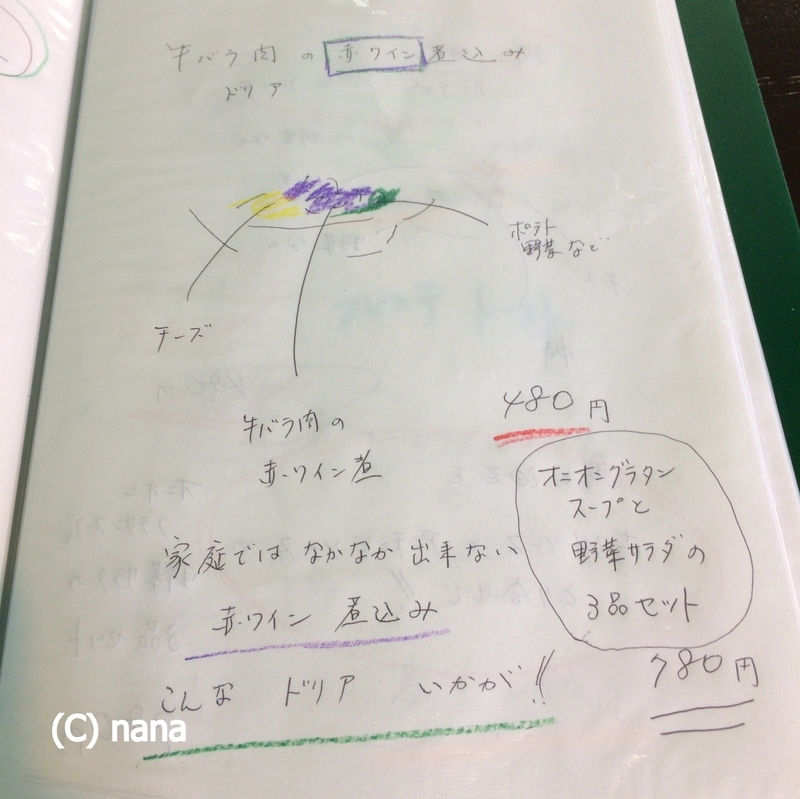 牛バラ肉の赤ワイン煮込み
ドリア
ポテト
野菜など
チーズ
牛バラ肉の
赤ワイン煮
480円
オニオングラタン
スープと
野菜サラダの
3品セット
780円
家庭ではなかなか出来ない
赤ワイン煮込み
こんなドリアいかが!!
(C) nana